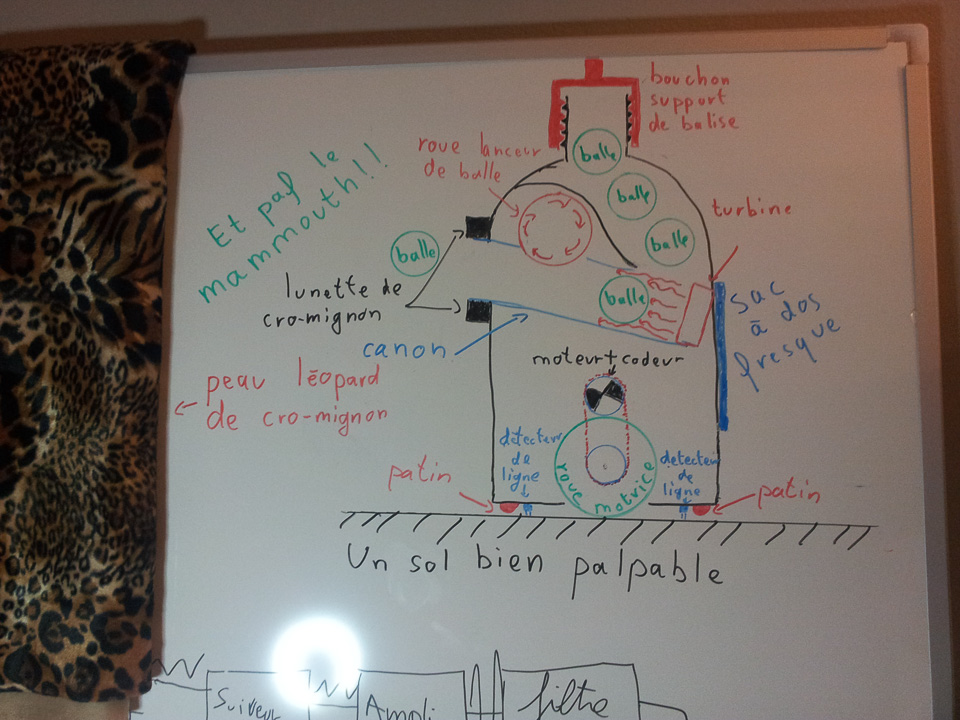 bouchon
support
de balise
roue lanceur
de balle
Et paf le
mammouth!!
balle
balle
balle
balle
balle
turbine
lunette de
cro-mignon
canon
sac
à dos
fresque
moteur+codeur
peau léopard
de cro-mignon
détecteur
de
ligne
roue motrice
détecteur
de
ligne
patin
patin
Un sol bien palpable
Suiveur
Ampli
filtre